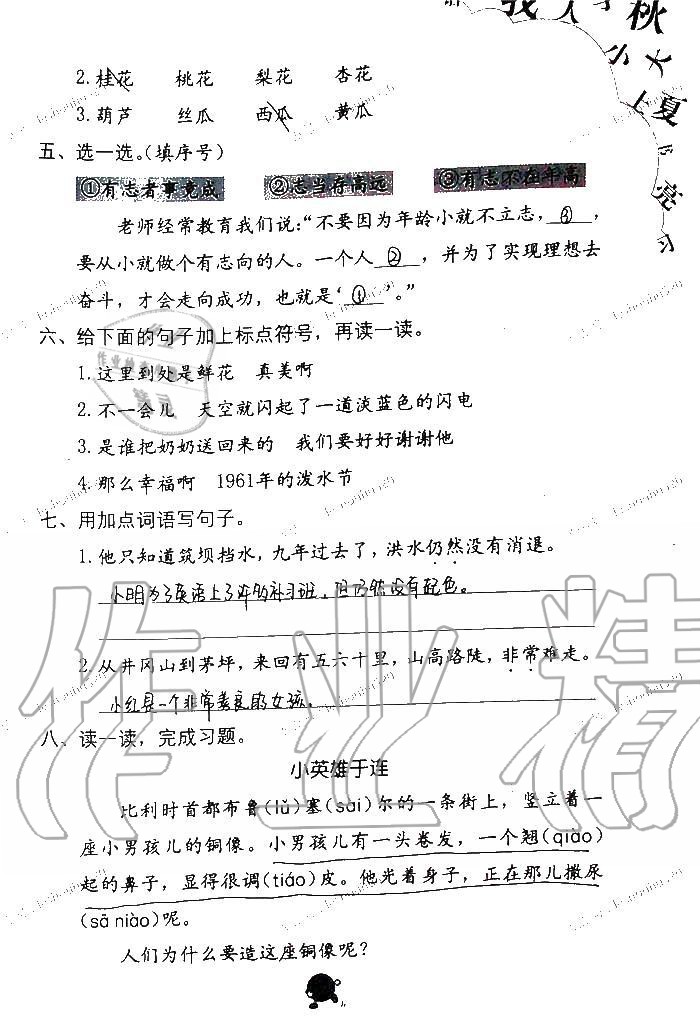 我 人 秋
大
上 夏
亮
习
2.桂花 桃花 梨花 杏花
3.葫芦 丝瓜 西瓜 黄瓜
五、选一选。(填序号)
①有志者事竟成 ②志当存高远 ③有志不在年高
老师经常教育我们说:“不要因为年龄小就不立志，③，
要从小就做个有志向的人。一个人②，并为了实现理想去
奋斗，才会走向成功，也就是‘①’。”
六、给下面的句子加上标点符号，再读一读。
1.这里到处是鲜花 真美啊
2.不一会儿 天空就闪起了一道淡蓝色的闪电
3.是谁把奶奶送回来的 我们要好好谢谢他
4.那么幸福啊 1961年的泼水节
七、用加点词语写句子。
1.他只知道筑坝挡水，九年过去了，洪水仍然没有消退。
小明为了英语上了年的补习班，但仍然没有起色。
2.从井冈山到茅坪，来回有五六十里，山高路陡，非常难走。
小红是一个非常善良的女孩。
八、读一读，完成习题。
小英雄于连
比利时首都布鲁(lǔ)塞(sài)尔的一条街上，竖立着一
座小男孩儿的铜像。小男孩儿有一头卷发，一个翘(qiào)
起的鼻子，显得很调(tiáo)皮。他光着身子，正在那儿撒尿
(sā niào)呢。
人们为什么要造这座铜像呢？
作业精